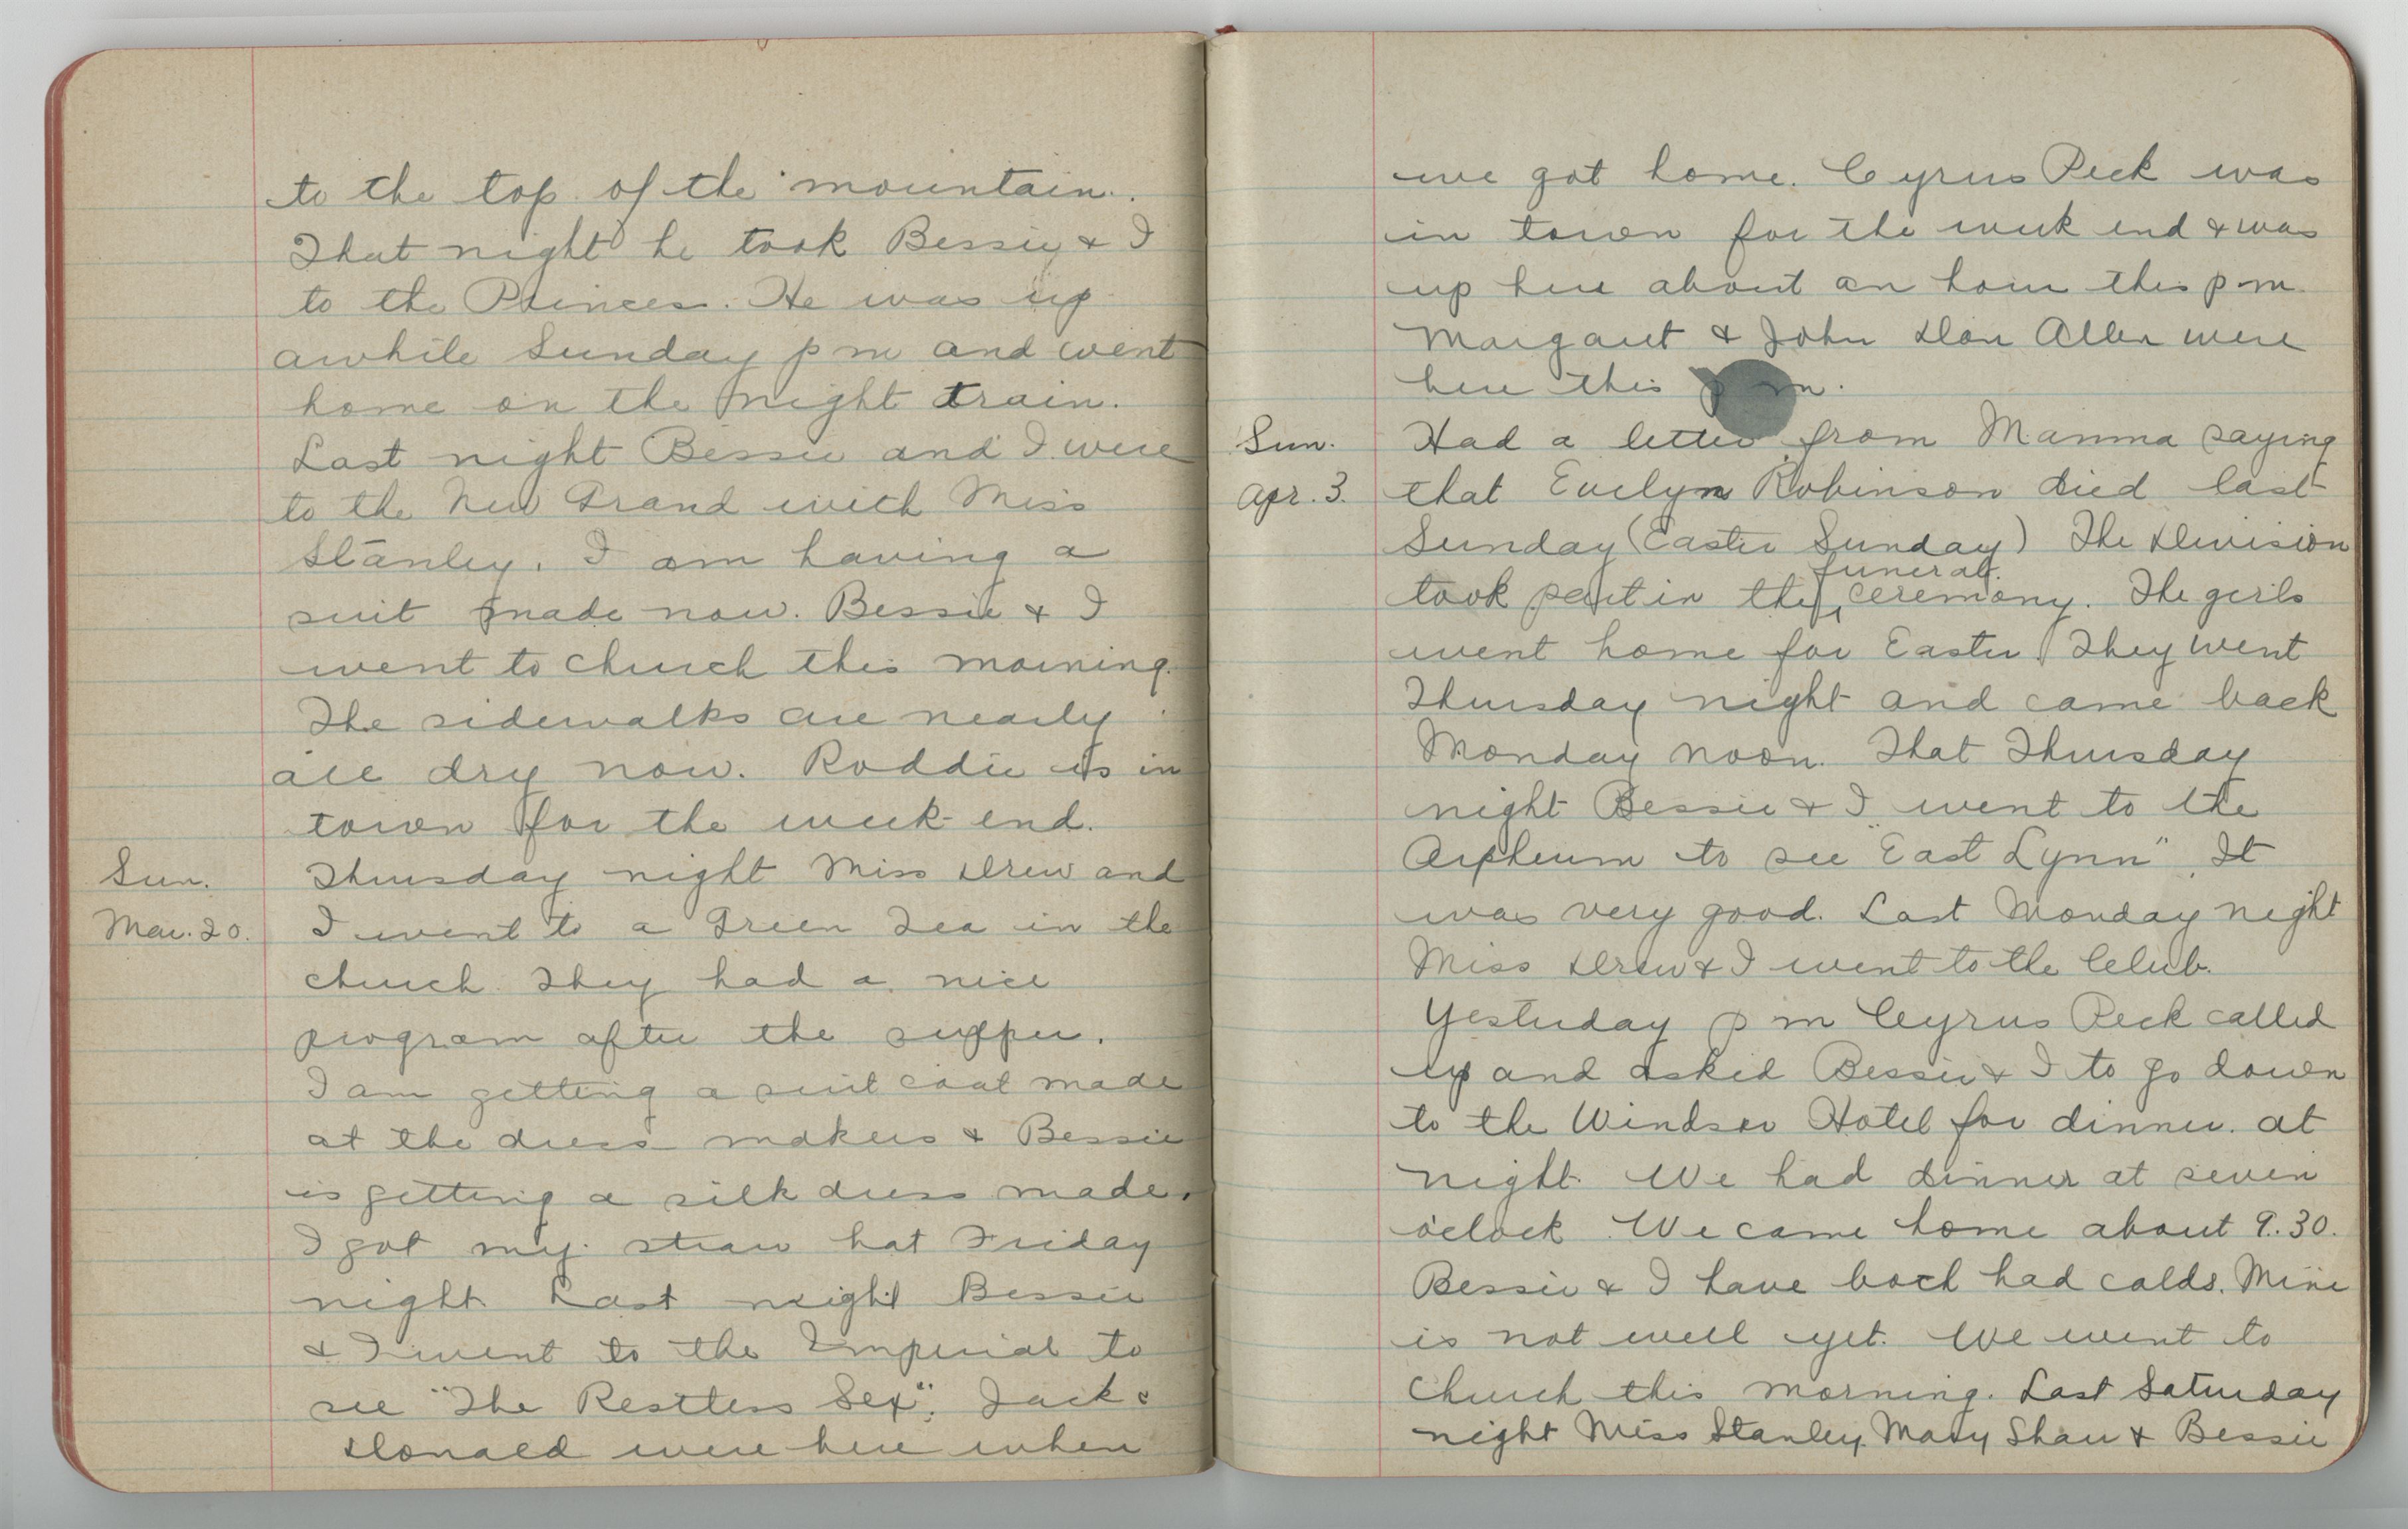 to the top of the mountain.
That night he took Bessie & I
to the Princess. He was up
awhile Sunday p m and went
home on the night train.
Last night Bessie and I were
to the New Grand with Miss
Stanley. I am having a
suit made now. Bessie & I
went to church this morning.
The sidewalks are nearly
all dry now. Roddie is in
town for the week-end.
Sun. Thursday night Miss Drew and
Mar. 20. I went to a Green Tea in the
church. They had a nice
program after the supper.
I am getting a suit coat made
at the dress makers & Bessie
is getting a silk dress made.
I got my straw hat Friday
night. Last night Bessie
& I went to the Imperial to
see "The Restless Sex". Jack &
Donald were here when
we got home. Cyrus Peck was
in town for the week end & was
up here about an hour this p m.
Margaret & John Dan Allen were
here this p m.
Sun. Had a letter from Mamma saying
Apr. 3. that Evelyn Robinson died last
Sunday (Easter Sunday) The Division
took part in the funeral ceremony. The girls
went home for Easter. They went
Thursday night and came back
Monday noon. That Thursday
night Bessie & I went to the
Orpheum to see "East Lynn". It
was very good. Last Monday night
Miss Drew & I went to the Club.
Yesterday p m Cyrus Peck called
up and asked Bessie & I to go down
to the Windsor Hotel for dinner at
night. We had dinner at seven
o'clock. We came home about 9.30.
Bessie & I have both had colds. Mine
is not well yet. We went to
church this morning. Last Saturday
night Miss Stanley, Mary Shaw & Bessie